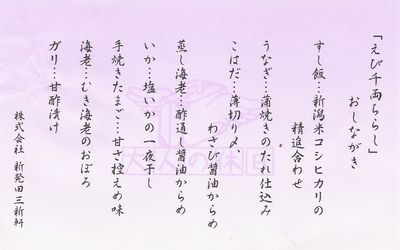 「えび千両ちらし」
おしながき
すし飯…新潟米コシヒカリの
精進合わせ
うなぎ…蒲焼きのたれ仕込み
こはだ…薄切り〆、
わさび醤油からめ
蒸し海老…酢通し醤油からめ
いか…塩いかの一夜干し
手焼きたまご…甘さ控えめ味
海老…むき海老のおぼろ
ガリ…甘酢漬け
株式会社 新発田三新軒
大人の休日